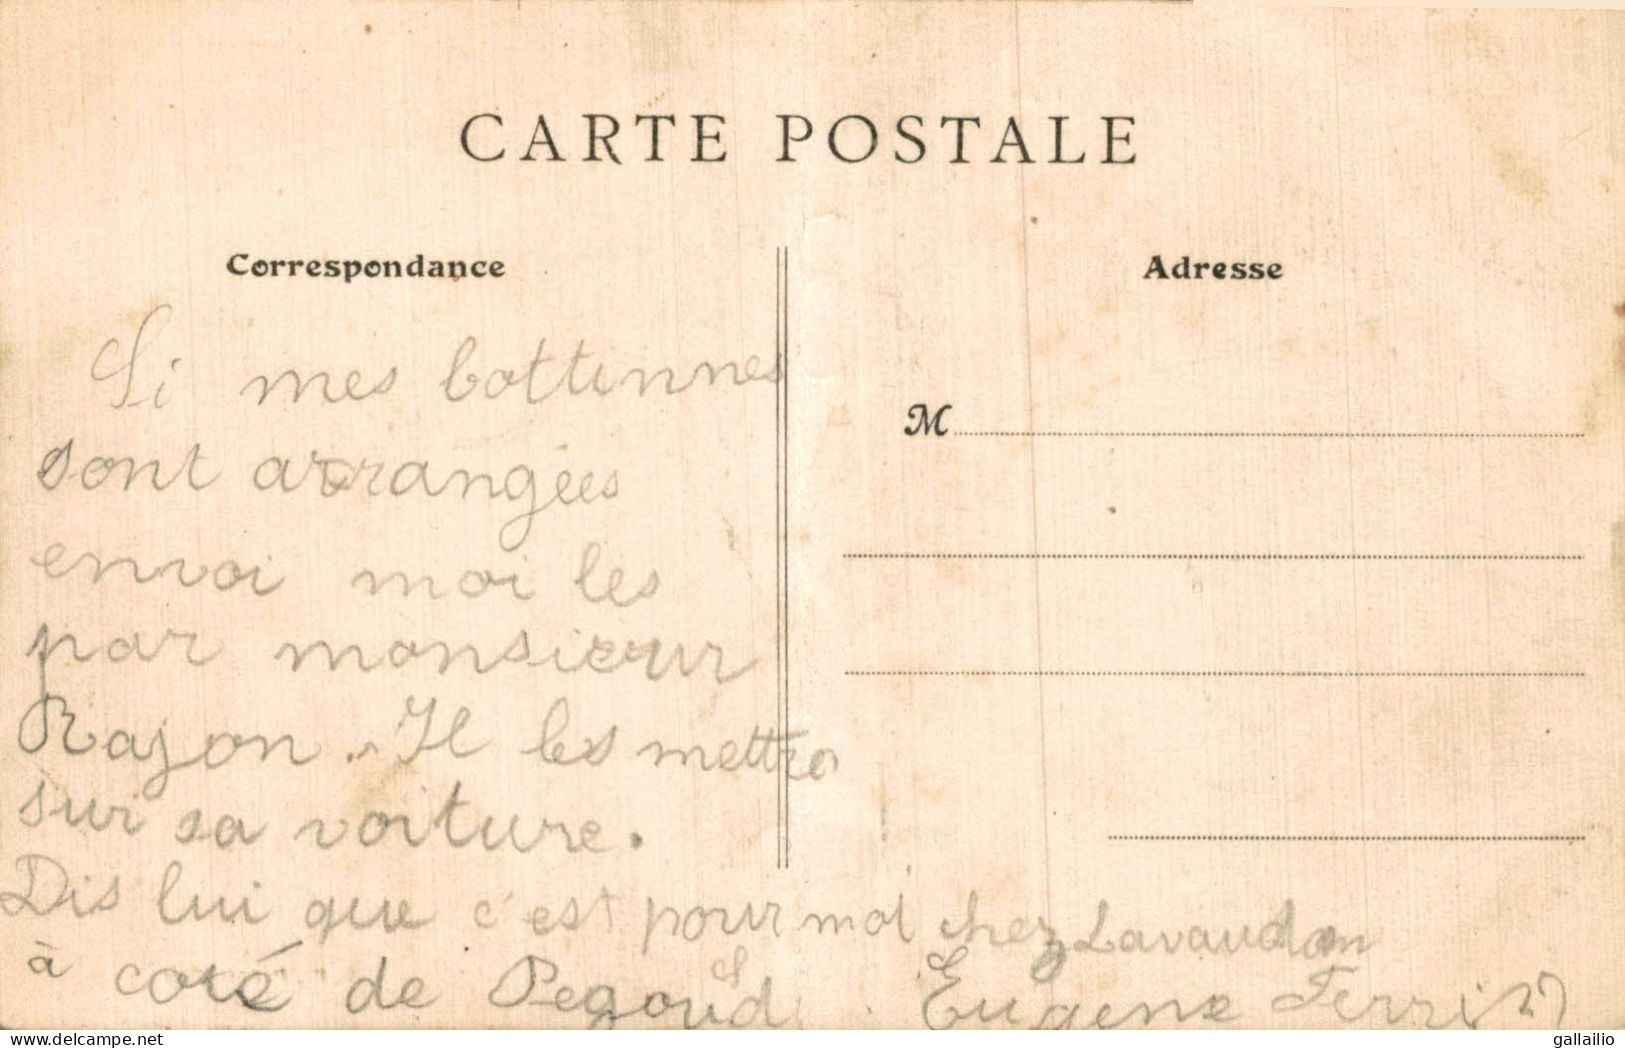 CARTE POSTALE
Correspondance
Adresse
M
Si mes bottinnes
sont arrangées
envoi moi les
par monsieur
Rajon. Il les mettra
sur sa voiture.
Dis lui que c'est pour moi chez Lavaudan
à coté de Pegoud. Eugene
delcampe.net
gallailio